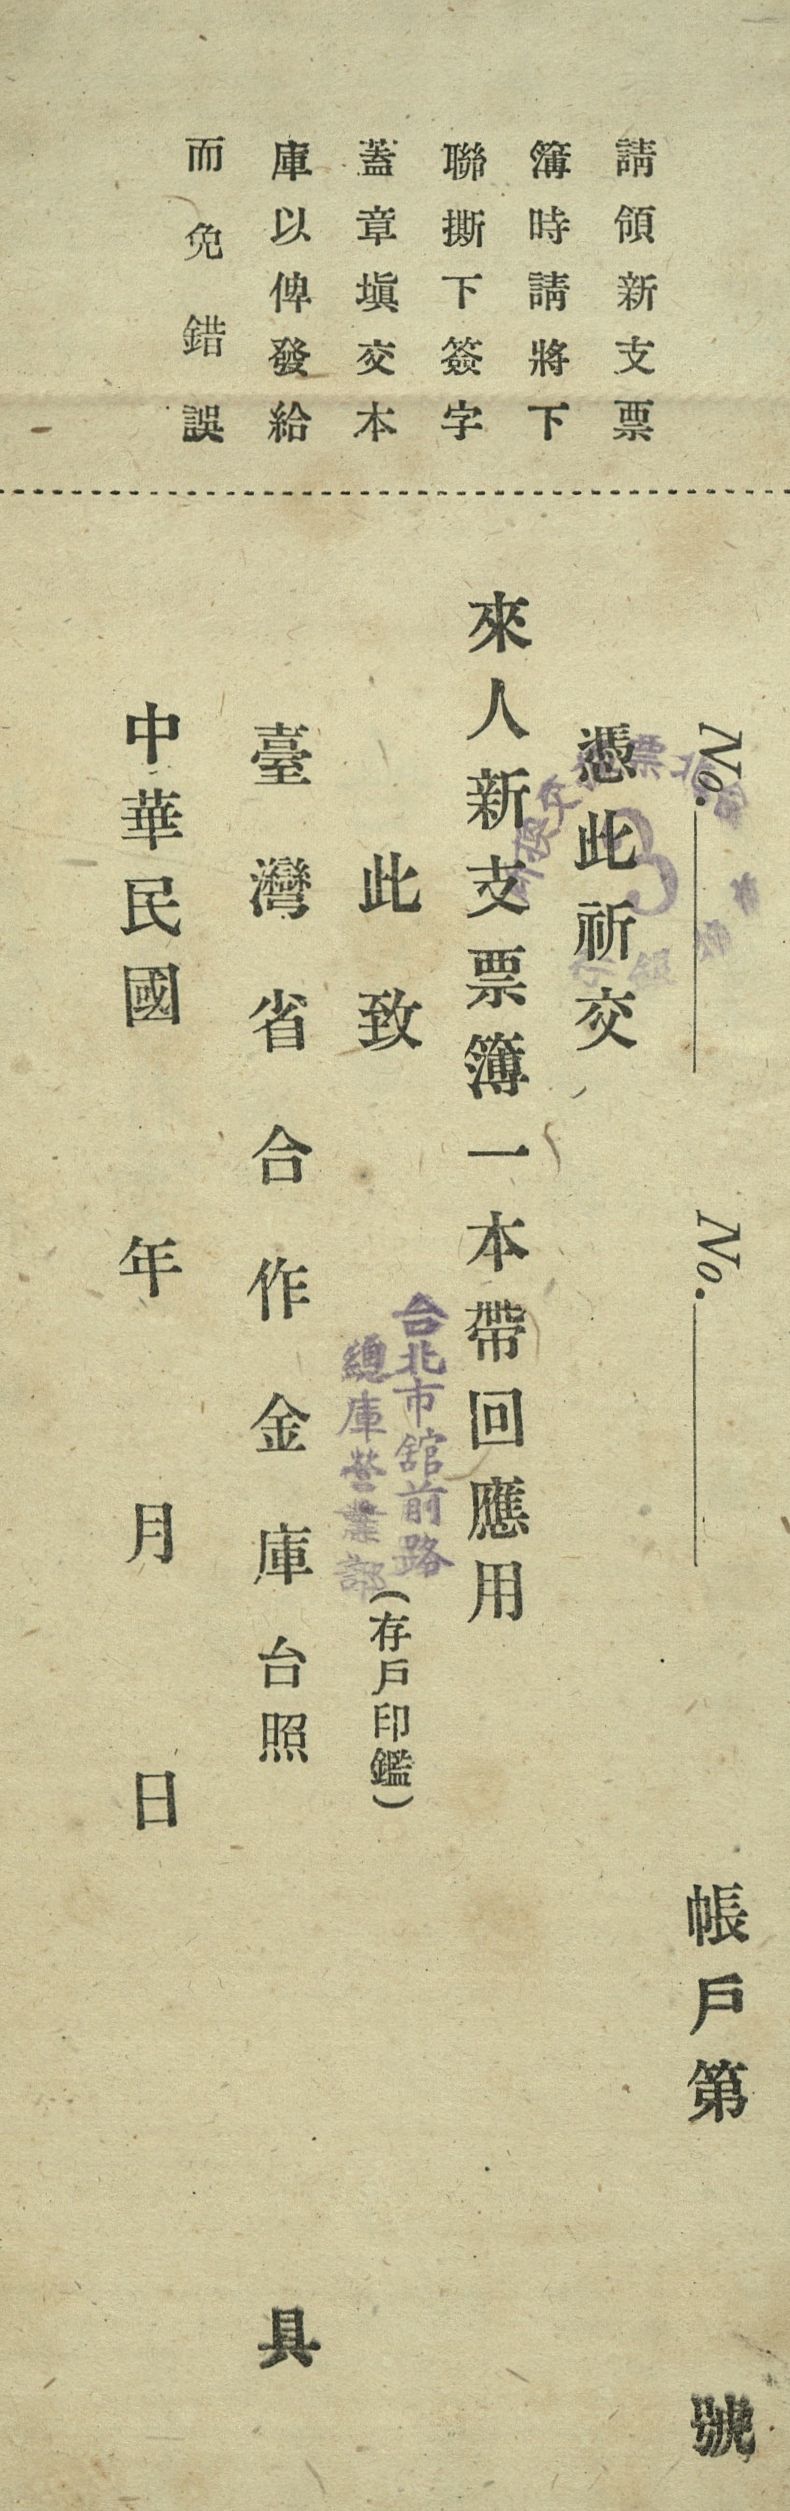 請領新支票
簿時請將下
聯撕下簽字
蓋章塡交本
庫以俾發給
而免錯誤
No. No.
帳戶第 號
憑此祈交
來人新支票簿一本帶回應用
此致
台北市舘前路
總庫營業部
(存戶印鑑)
臺灣省合作金庫台照
具
中華民國 年 月 日
3